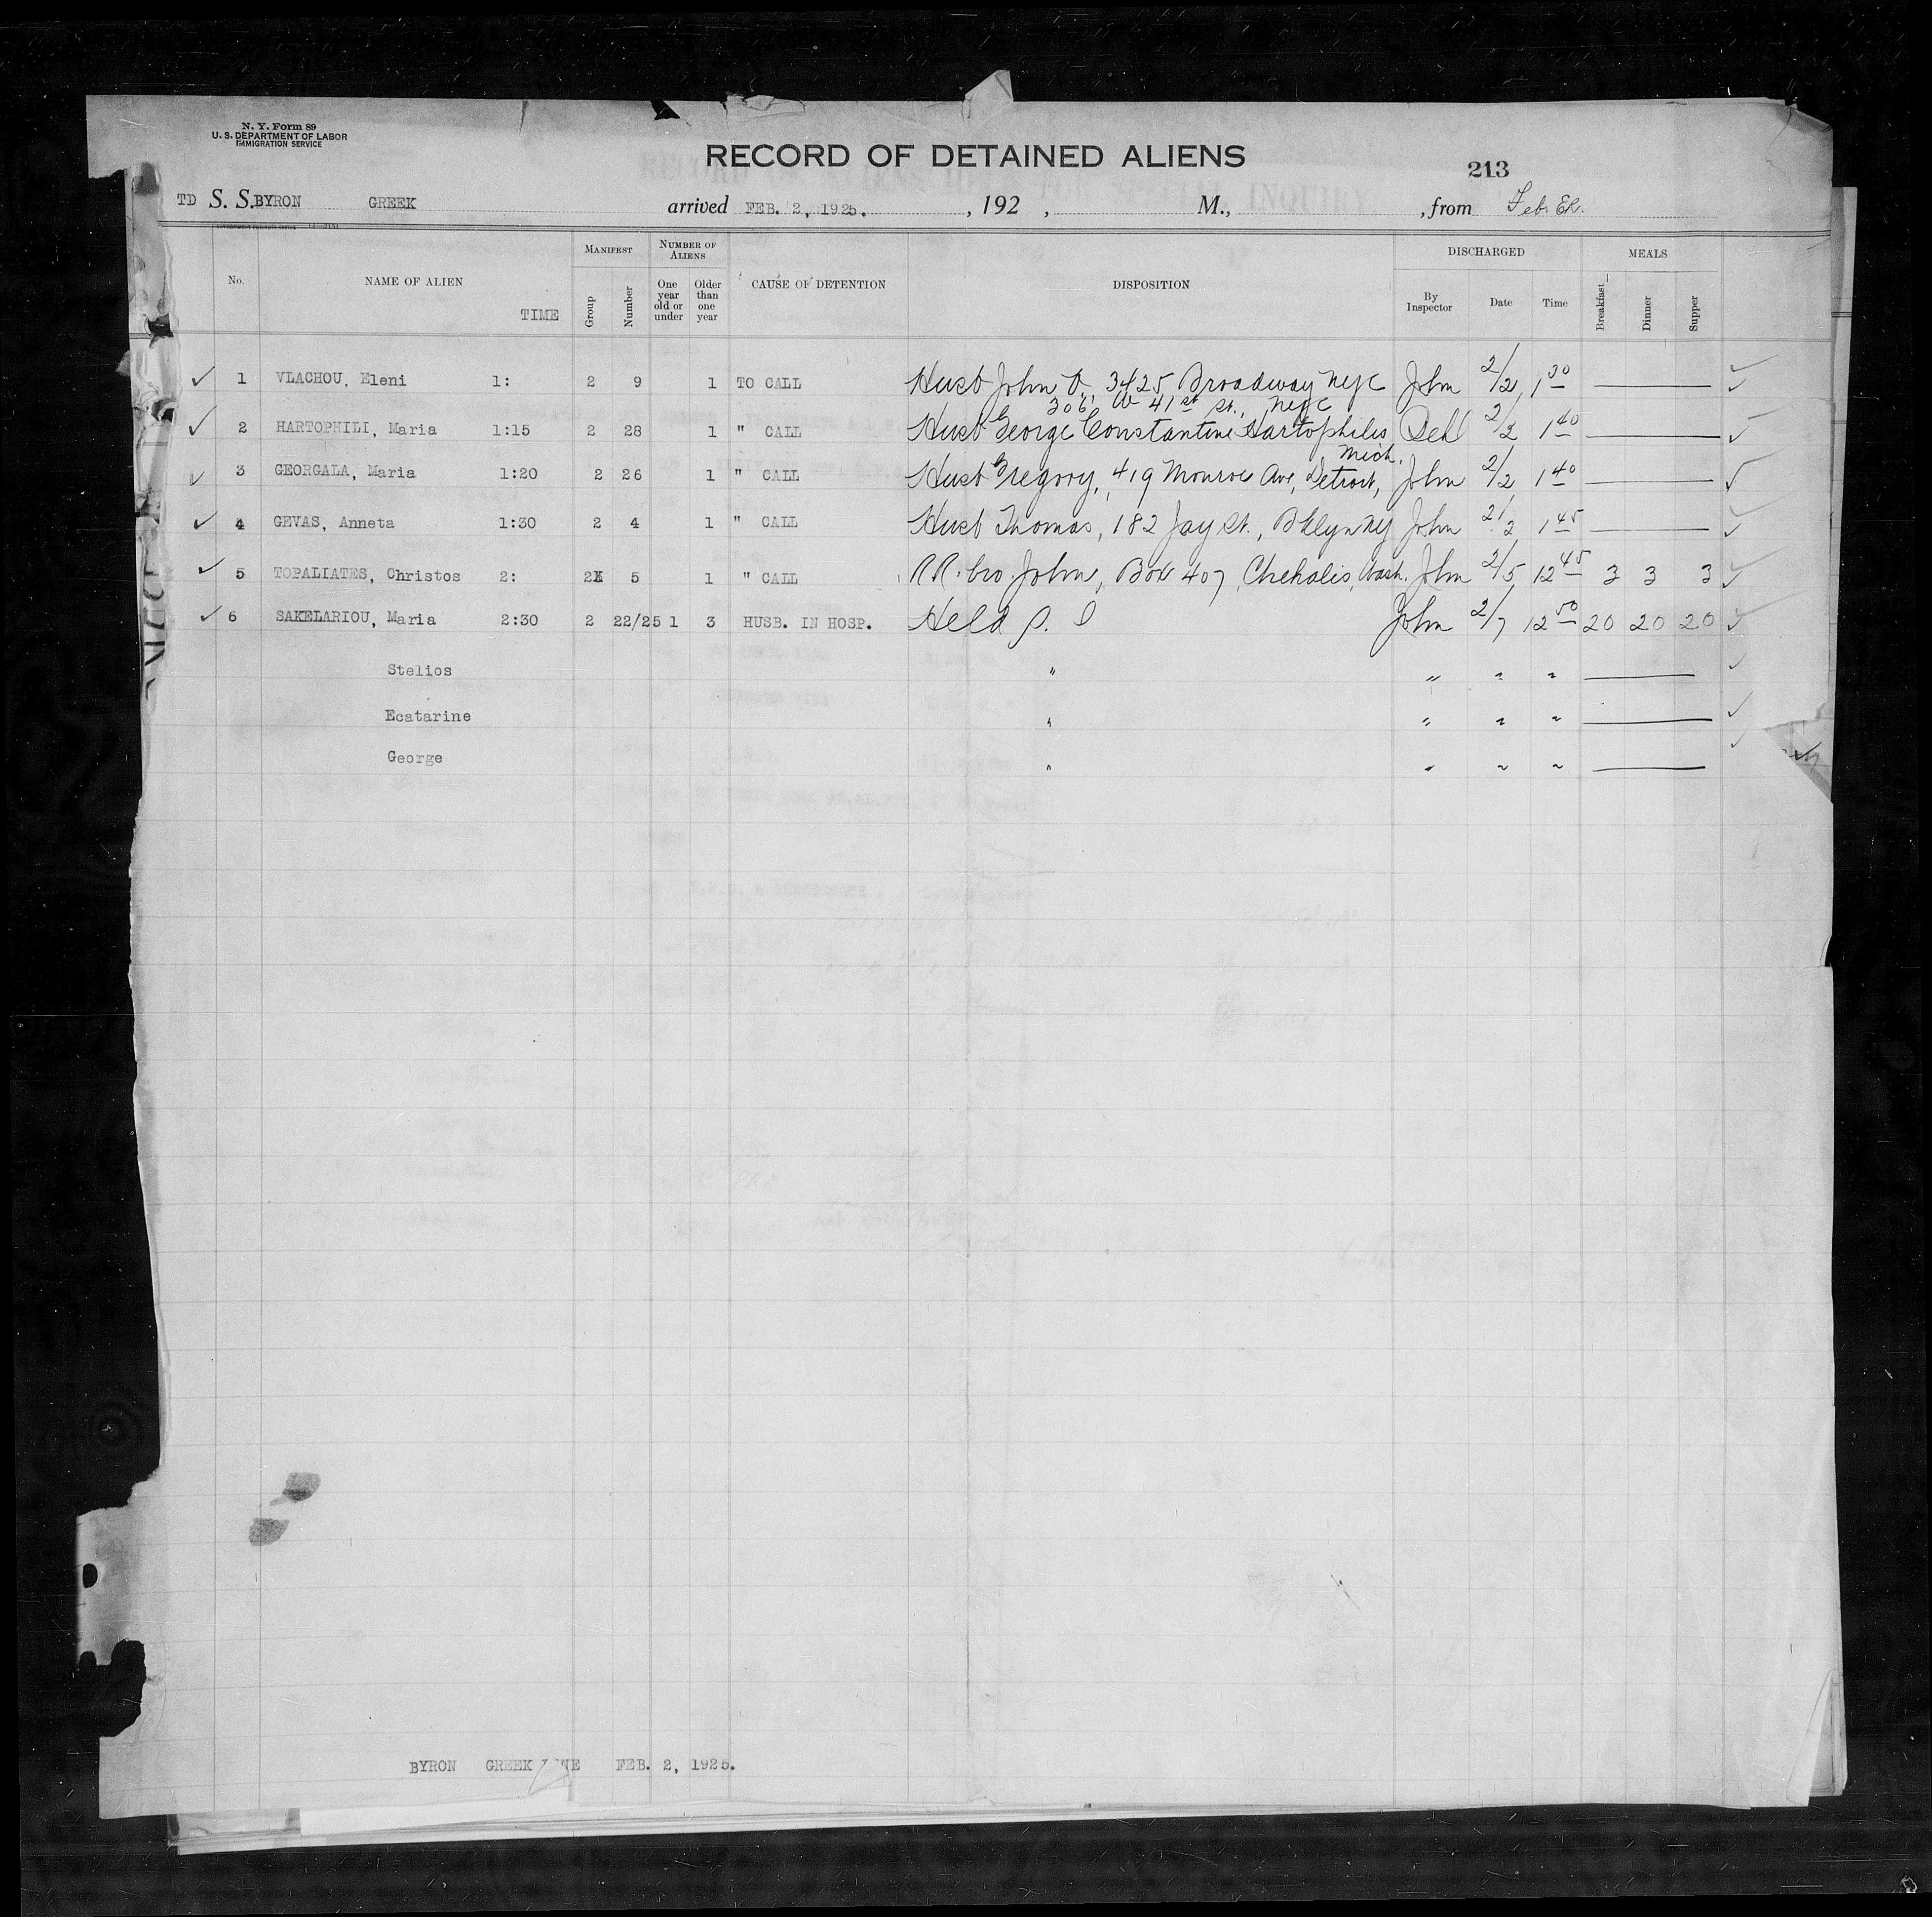 N. Y. Form 89
U. S. DEPARTMENT OF LABOR
IMMIGRATION SERVICE
RECORD OF DETAINED ALIENS
213
TD S. S. BYRON GREEK arrived FEB. 2, 1925. , 192 , M., , from Feb.
No. NAME OF ALIEN TIME MANIFEST Group Number NUMBER OF ALIENS One year old or under Older than one year CAUSE OF DETENTION DISPOSITION DISCHARGED By Inspector Date Time MEALS Breakfast Dinner Supper
1 VLACHOU, Eleni 1: 2 9 1 TO CALL Husb John 3425 Broadway NYC John 2/2 1 30
306 W 41st St., NYC
2 HARTOPHILI, Maria 1:15 2 28 1 " CALL Husb George Constantine Hartophilis 2/2 1 40
3 GEORGALA, Maria 1:20 2 26 1 " CALL Husb Gregory, 419 Monroe Ave, Detroit, Mich. John 2/2 1 40
4 GEVAS, Anneta 1:30 2 4 1 " CALL Husb Thomas, 182 Jay St., Bklyn NY John 2/2 1 45
5 TOPALIATES, Christos 2: 2X 5 1 " CALL RR. bro. John, Box 407, Chehalis, Wash. John 2/5 12 45 3 3 3
6 SAKELARIOU, Maria 2:30 2 22/25 1 3 HUSB. IN HOSP. Held S. I John 2/7 12 50 20 20 20
Stelios " " " "
Ecatarine " " " "
George " " " "
BYRON GREEK FEB. 2, 1925.